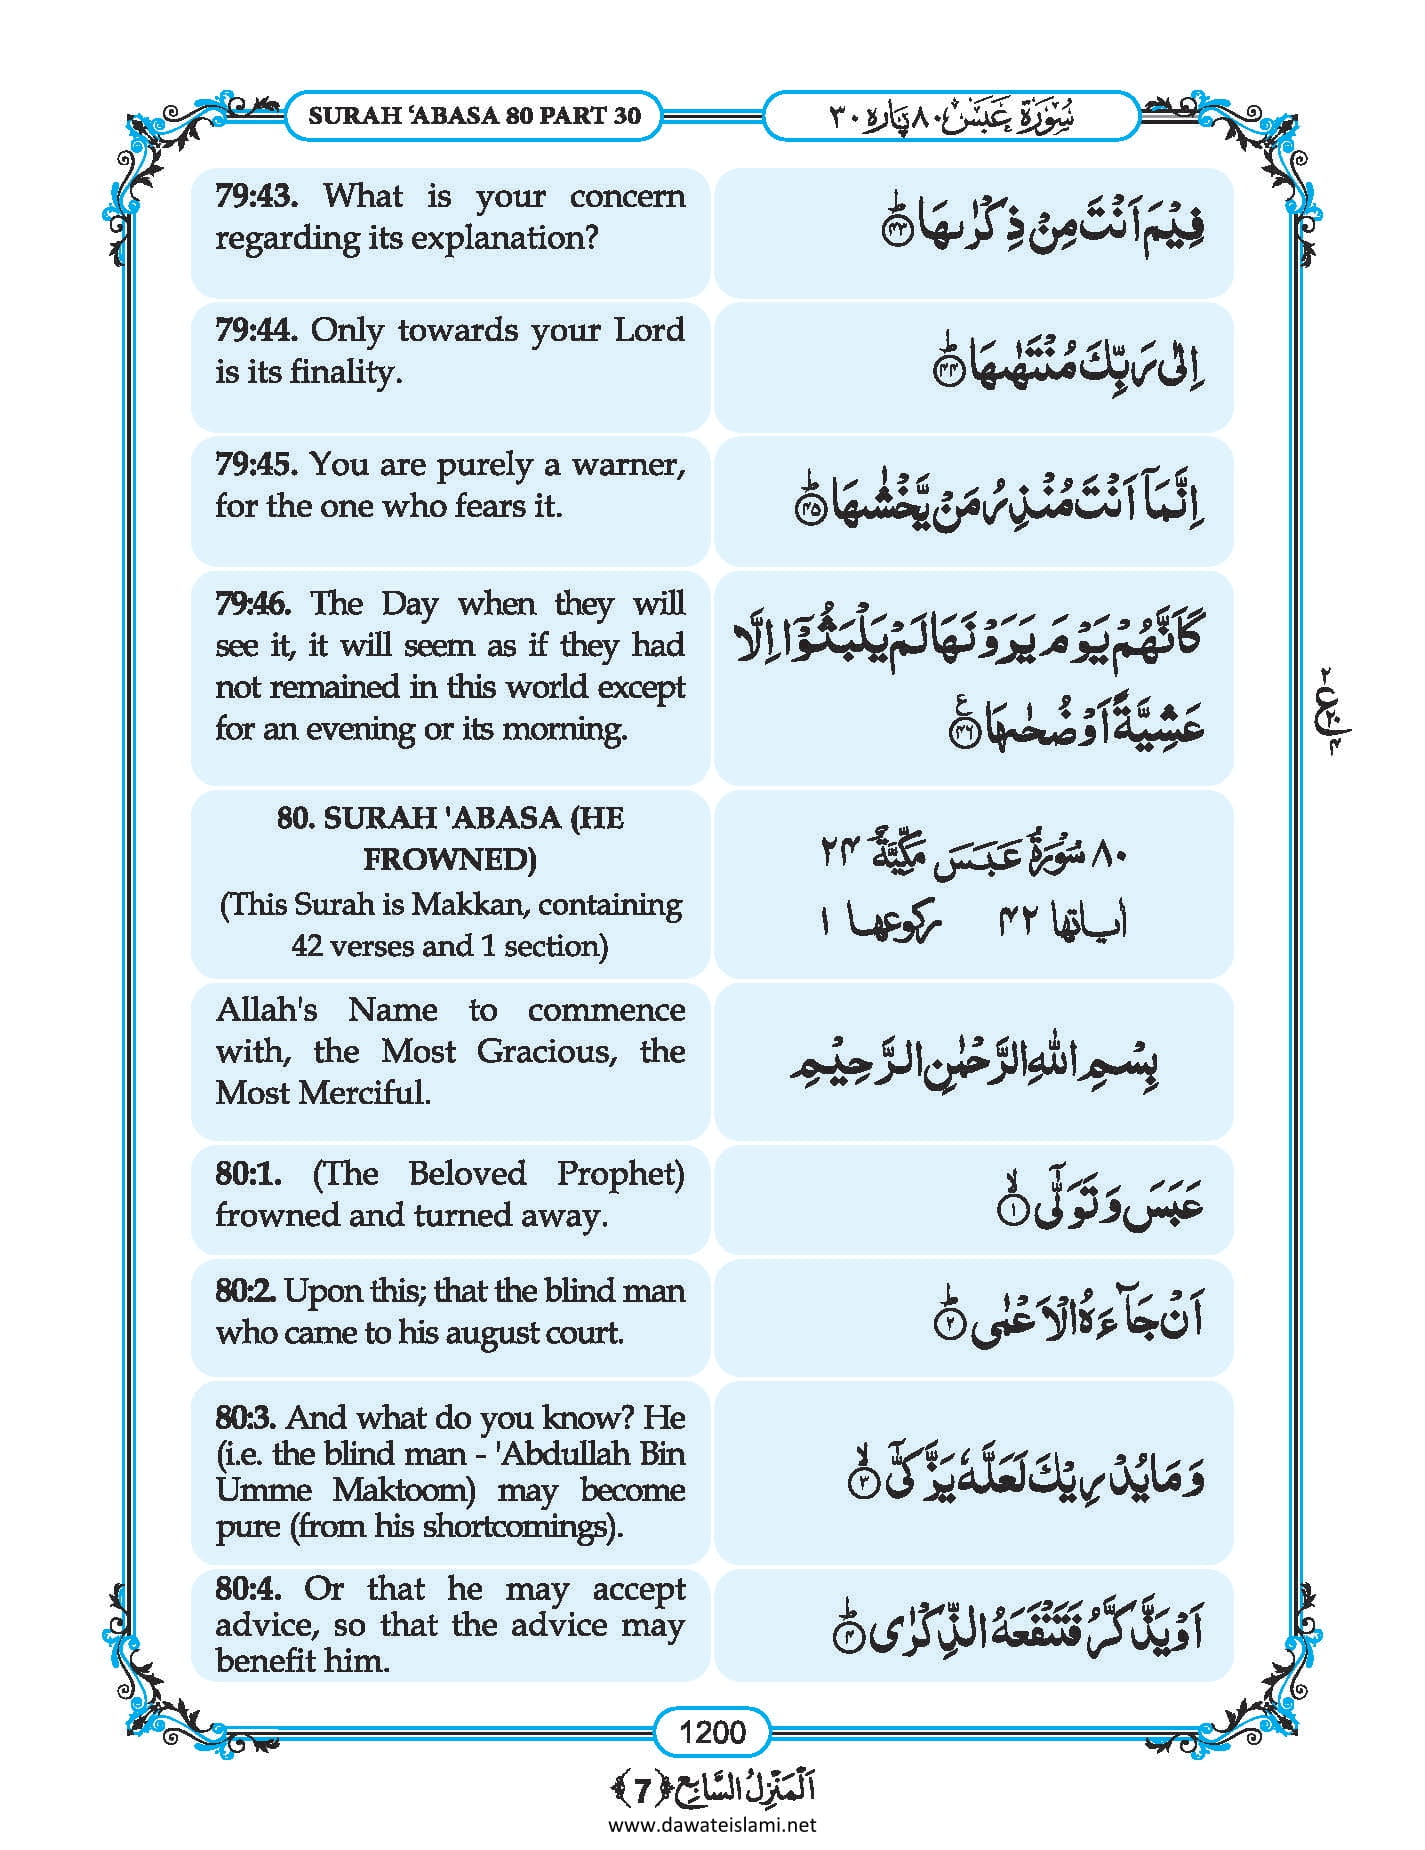 SURAH ‘ABASA 80 PART 30
سُوْرَةُ عَبَسَ ٨٠ پاره ٣٠
79:43. What is your concern
regarding its explanation?
فِیْمَ اَنْتَ مِنْ ذِكْرٰىهَاؕ﴿۴۳﴾
79:44. Only towards your Lord
is its finality.
اِلٰى رَبِّكَ مُنْتَهٰىهَاؕ﴿۴۴﴾
79:45. You are purely a warner,
for the one who fears it.
اِنَّمَاۤ اَنْتَ مُنْذِرُ مَنْ یَّخْشٰىهَاؕ﴿۴۵﴾
79:46. The Day when they will
see it, it will seem as if they had
not remained in this world except
for an evening or its morning.
كَاَنَّهُمْ یَوْمَ یَرَوْنَهَا لَمْ یَلْبَثُوْۤا اِلَّا
عَشِیَّةً اَوْ ضُحٰىهَا﴿۴۶﴾ع
80. SURAH 'ABASA (HE
FROWNED)
(This Surah is Makkan, containing
42 verses and 1 section)
٨٠ سُوْرَةُ عَبَسَ مَكِّیَّةٌ ۲۴
اٰیاتها ۴۲ رکوعها ۱
Allah's Name to commence
with, the Most Gracious, the
Most Merciful.
بِسْمِ اللّٰهِ الرَّحْمٰنِ الرَّحِیْمِ
80:1. (The Beloved Prophet)
frowned and turned away.
عَبَسَ وَ تَوَلّٰۤىۙ﴿۱﴾
80:2. Upon this; that the blind man
who came to his august court.
اَنْ جَآءَهُ الْاَعْمٰىؕ﴿۲﴾
80:3. And what do you know? He
(i.e. the blind man - 'Abdullah Bin
Umme Maktoom) may become
pure (from his shortcomings).
وَ مَا یُدْرِیْكَ لَعَلَّهٗ یَزَّكّٰۤىۙ﴿۳﴾
80:4. Or that he may accept
advice, so that the advice may
benefit him.
اَوْ یَذَّكَّرُ فَتَنْفَعَهُ الذِّكْرٰىؕ﴿۴﴾
۲
ع
۲۰
۴
1200
اَلْمَنْزِلُ السَّابِع ﴿7﴾
www.dawateislami.net